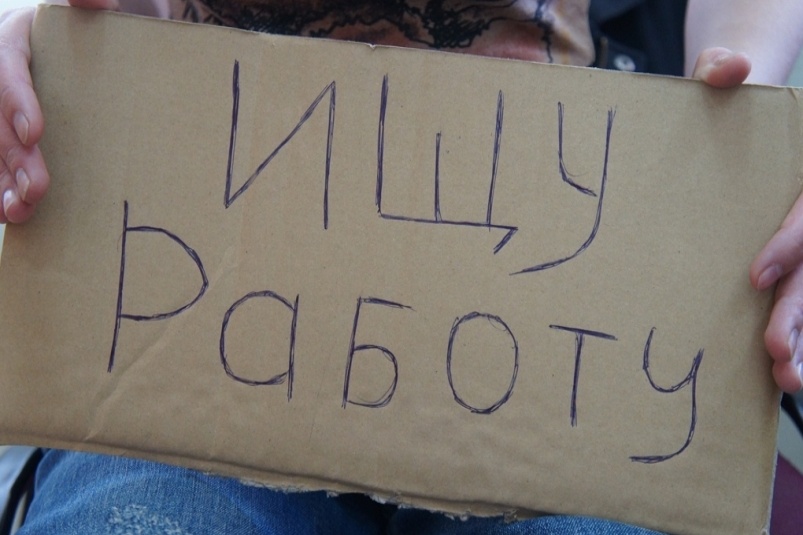 ИЩУ
Работу